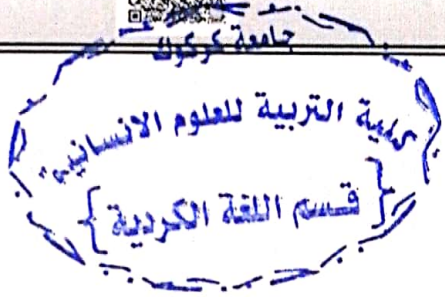 جامعة كركوك
كلية التربية للعلوم الانسانية
{ قسم اللغة الكردية }